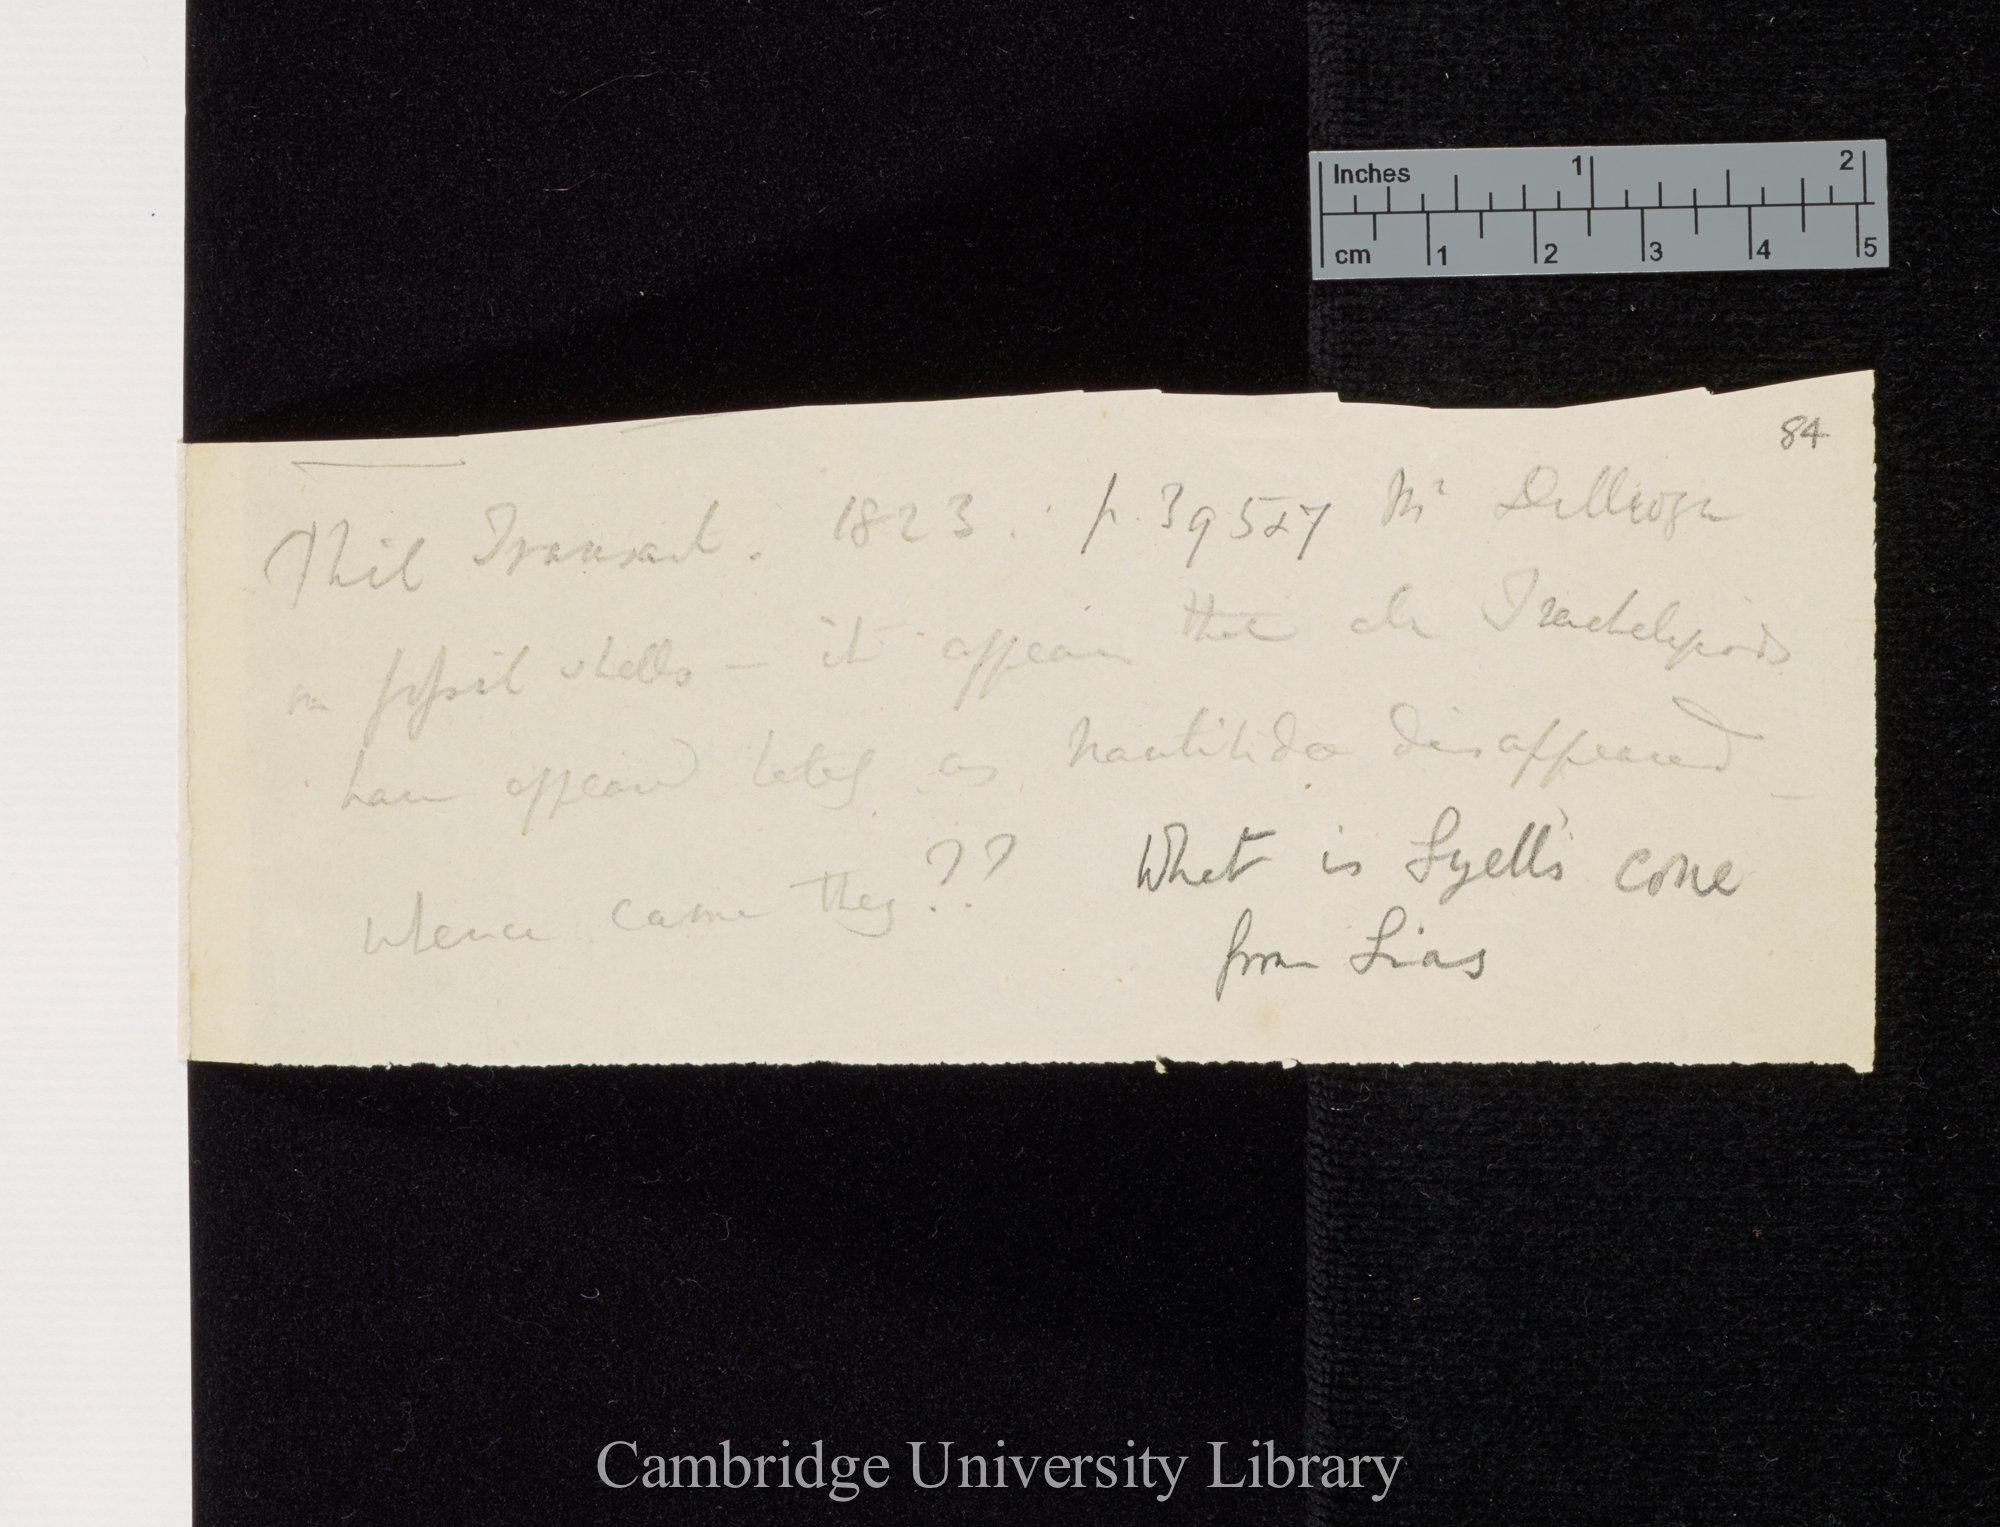 Inches 1 2
cm 1 2 3 4 5
84
Phil Transact. 1823. p. 395 Mr Dillwyn
on fossil shells — it appears that Trachelipods
have appeared lately as Nautilidae disappeared —
whence came they?? What is Lyell's cone
from Lias
Cambridge University Library